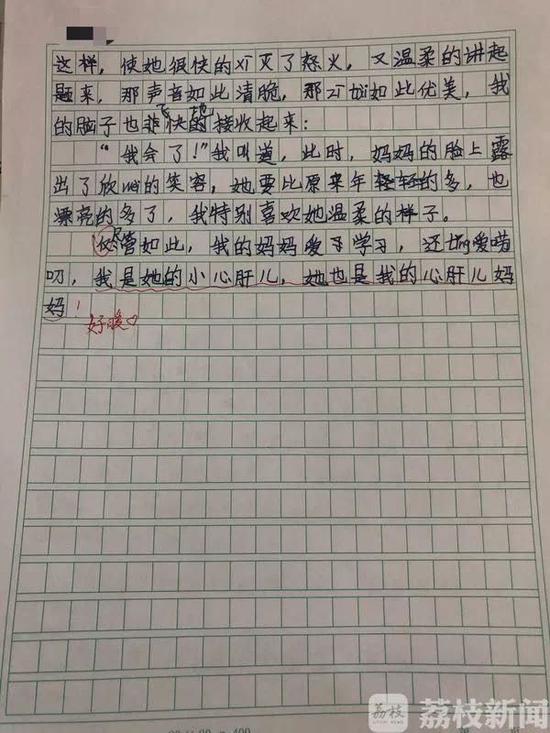 这样，使她很快的xī灭了怒火，又温柔的讲起
题来，那声音如此清脆，那zī tài如此优美，我
的脑子也飞快的接收起来：
“我会了！”我叫道，此时，妈妈的脸上露
出了欣wèi的笑容，她要比原来年轻轻的多，也
漂亮的多了，我特别喜欢她温柔的样子。
尽管如此，我的妈妈爱学习，还tǐng爱唠
叨，我是她的小心肝儿，她也是我的心肝儿妈
妈！
好暖♡
荔枝
荔枝新闻